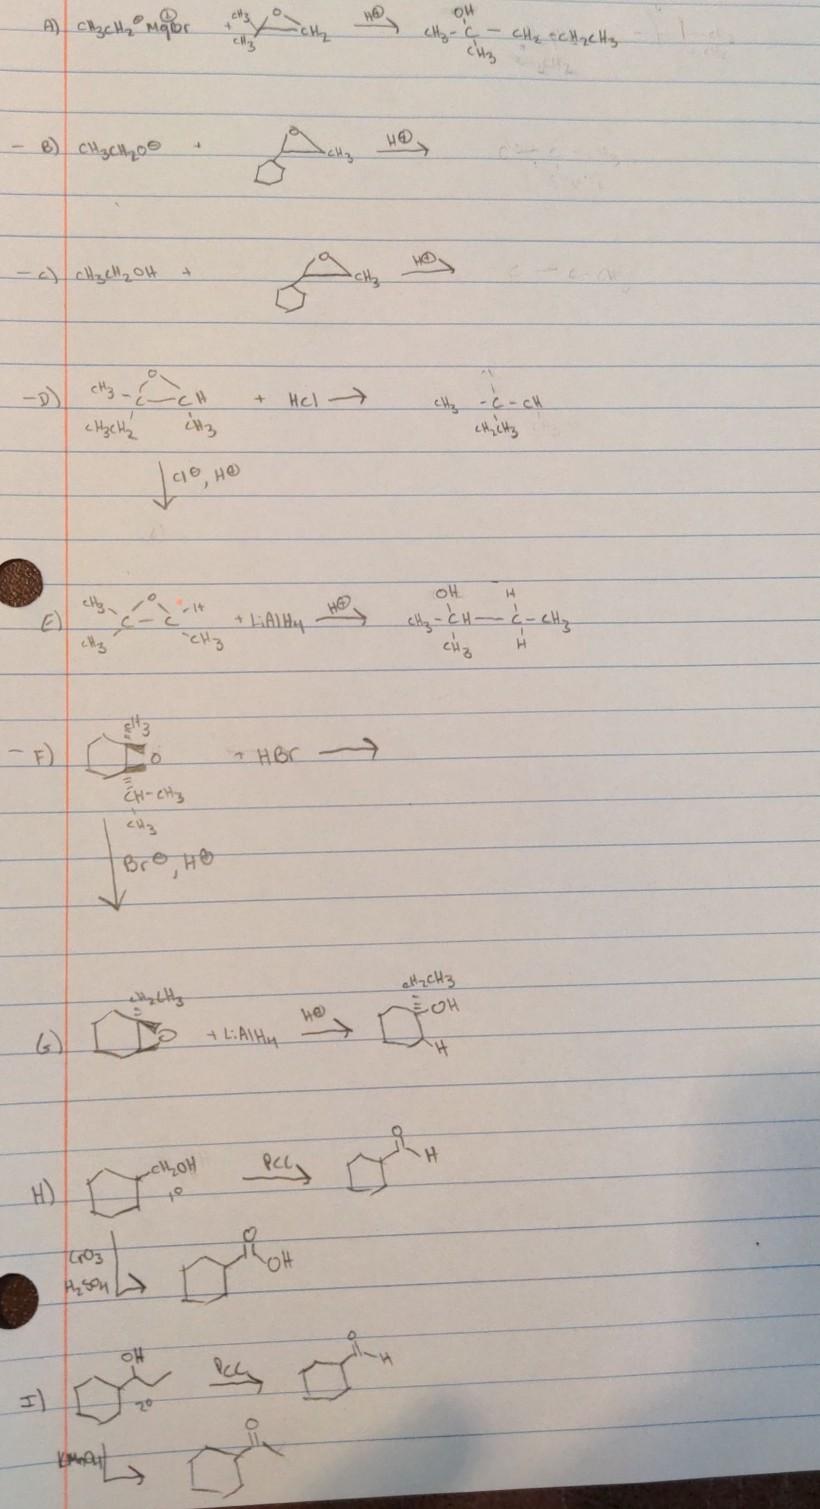 A) CH3CH2⊖ MgBr⊕ + CH3 CH3 O CH2 H⊕ → CH3-C(OH)(CH3)-CH2-CH2CH3
- B) CH3CH2O⊖ + O CH3 H⊕ →
- C) CH3CH2OH + O CH3 H⊕ →
- D) CH3-C O CH + HCl → CH3-C-CH
CH3CH2 CH3 CH2CH3
Cl⊖, H⊕
E) CH3 CH3 C-C O H CH3 + LiAlH4 H⊕ → CH3-CH(OH)(CH3)-C(H)(H)-CH3
- F) CH3 O + HBr →
CH-CH3
CH3
Br⊖, H⊕
G) CH2CH3 O + LiAlH4 H⊕ → CH2CH3 OH H
H) CH2OH 1° PCC → O H
CrO3
H2SO4 → O OH
I) OH 2° PCC → O H
KMnO4 → O